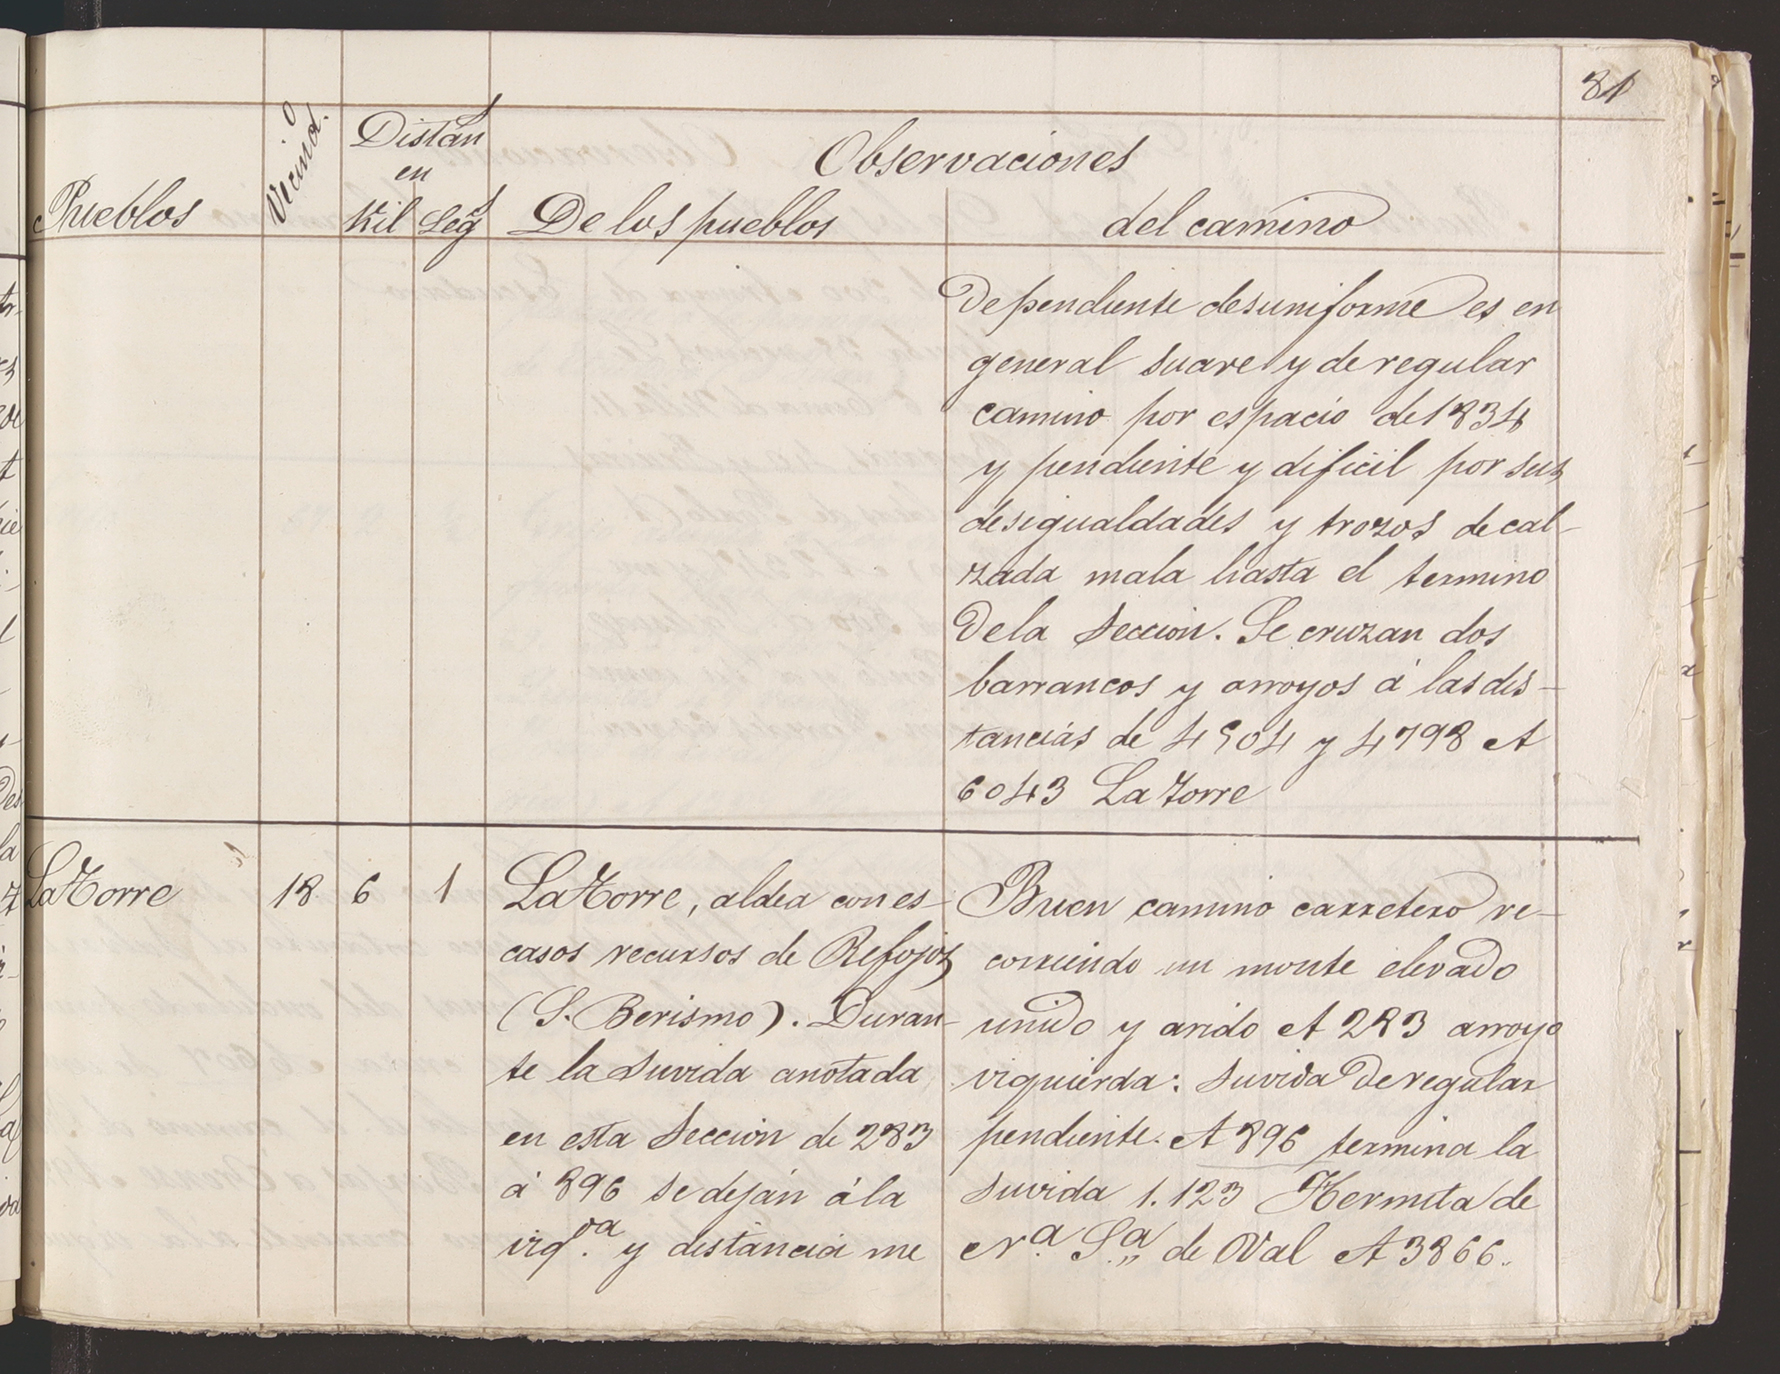 81
Pueblos
Vecind.º
Distan
en
Kil Leg
Observaciones
De los pueblos
del camino
Dependiente desuniforme es en
general suave y de regular
camino por espacio de 1834
y pendiente y dificil por sus
desigualdades y trozos de cal-
zada mala hasta el termino
De la Seccion. Se cruzan dos
barrancos y arroyos á las dis-
tancias de 4504 y 4798 A
6043 La Torre
La Torre 18 6 1
La Torre, aldea con es-
casos recursos de Refojos
(S. Berismo). Duran-
te la suvida anotada
en esta Seccion de 283
á 896 se dejan á la
izq.ᵈᵃ y distancia me
Buen camino carretero re-
corriendo un monte elevado
unido y arido A 283 arroyo
izquierda: suvida De regular
pendiente. A 896 termina la
suvida 1.123 Hermita de
Nª. Sª. de Val A 3866.